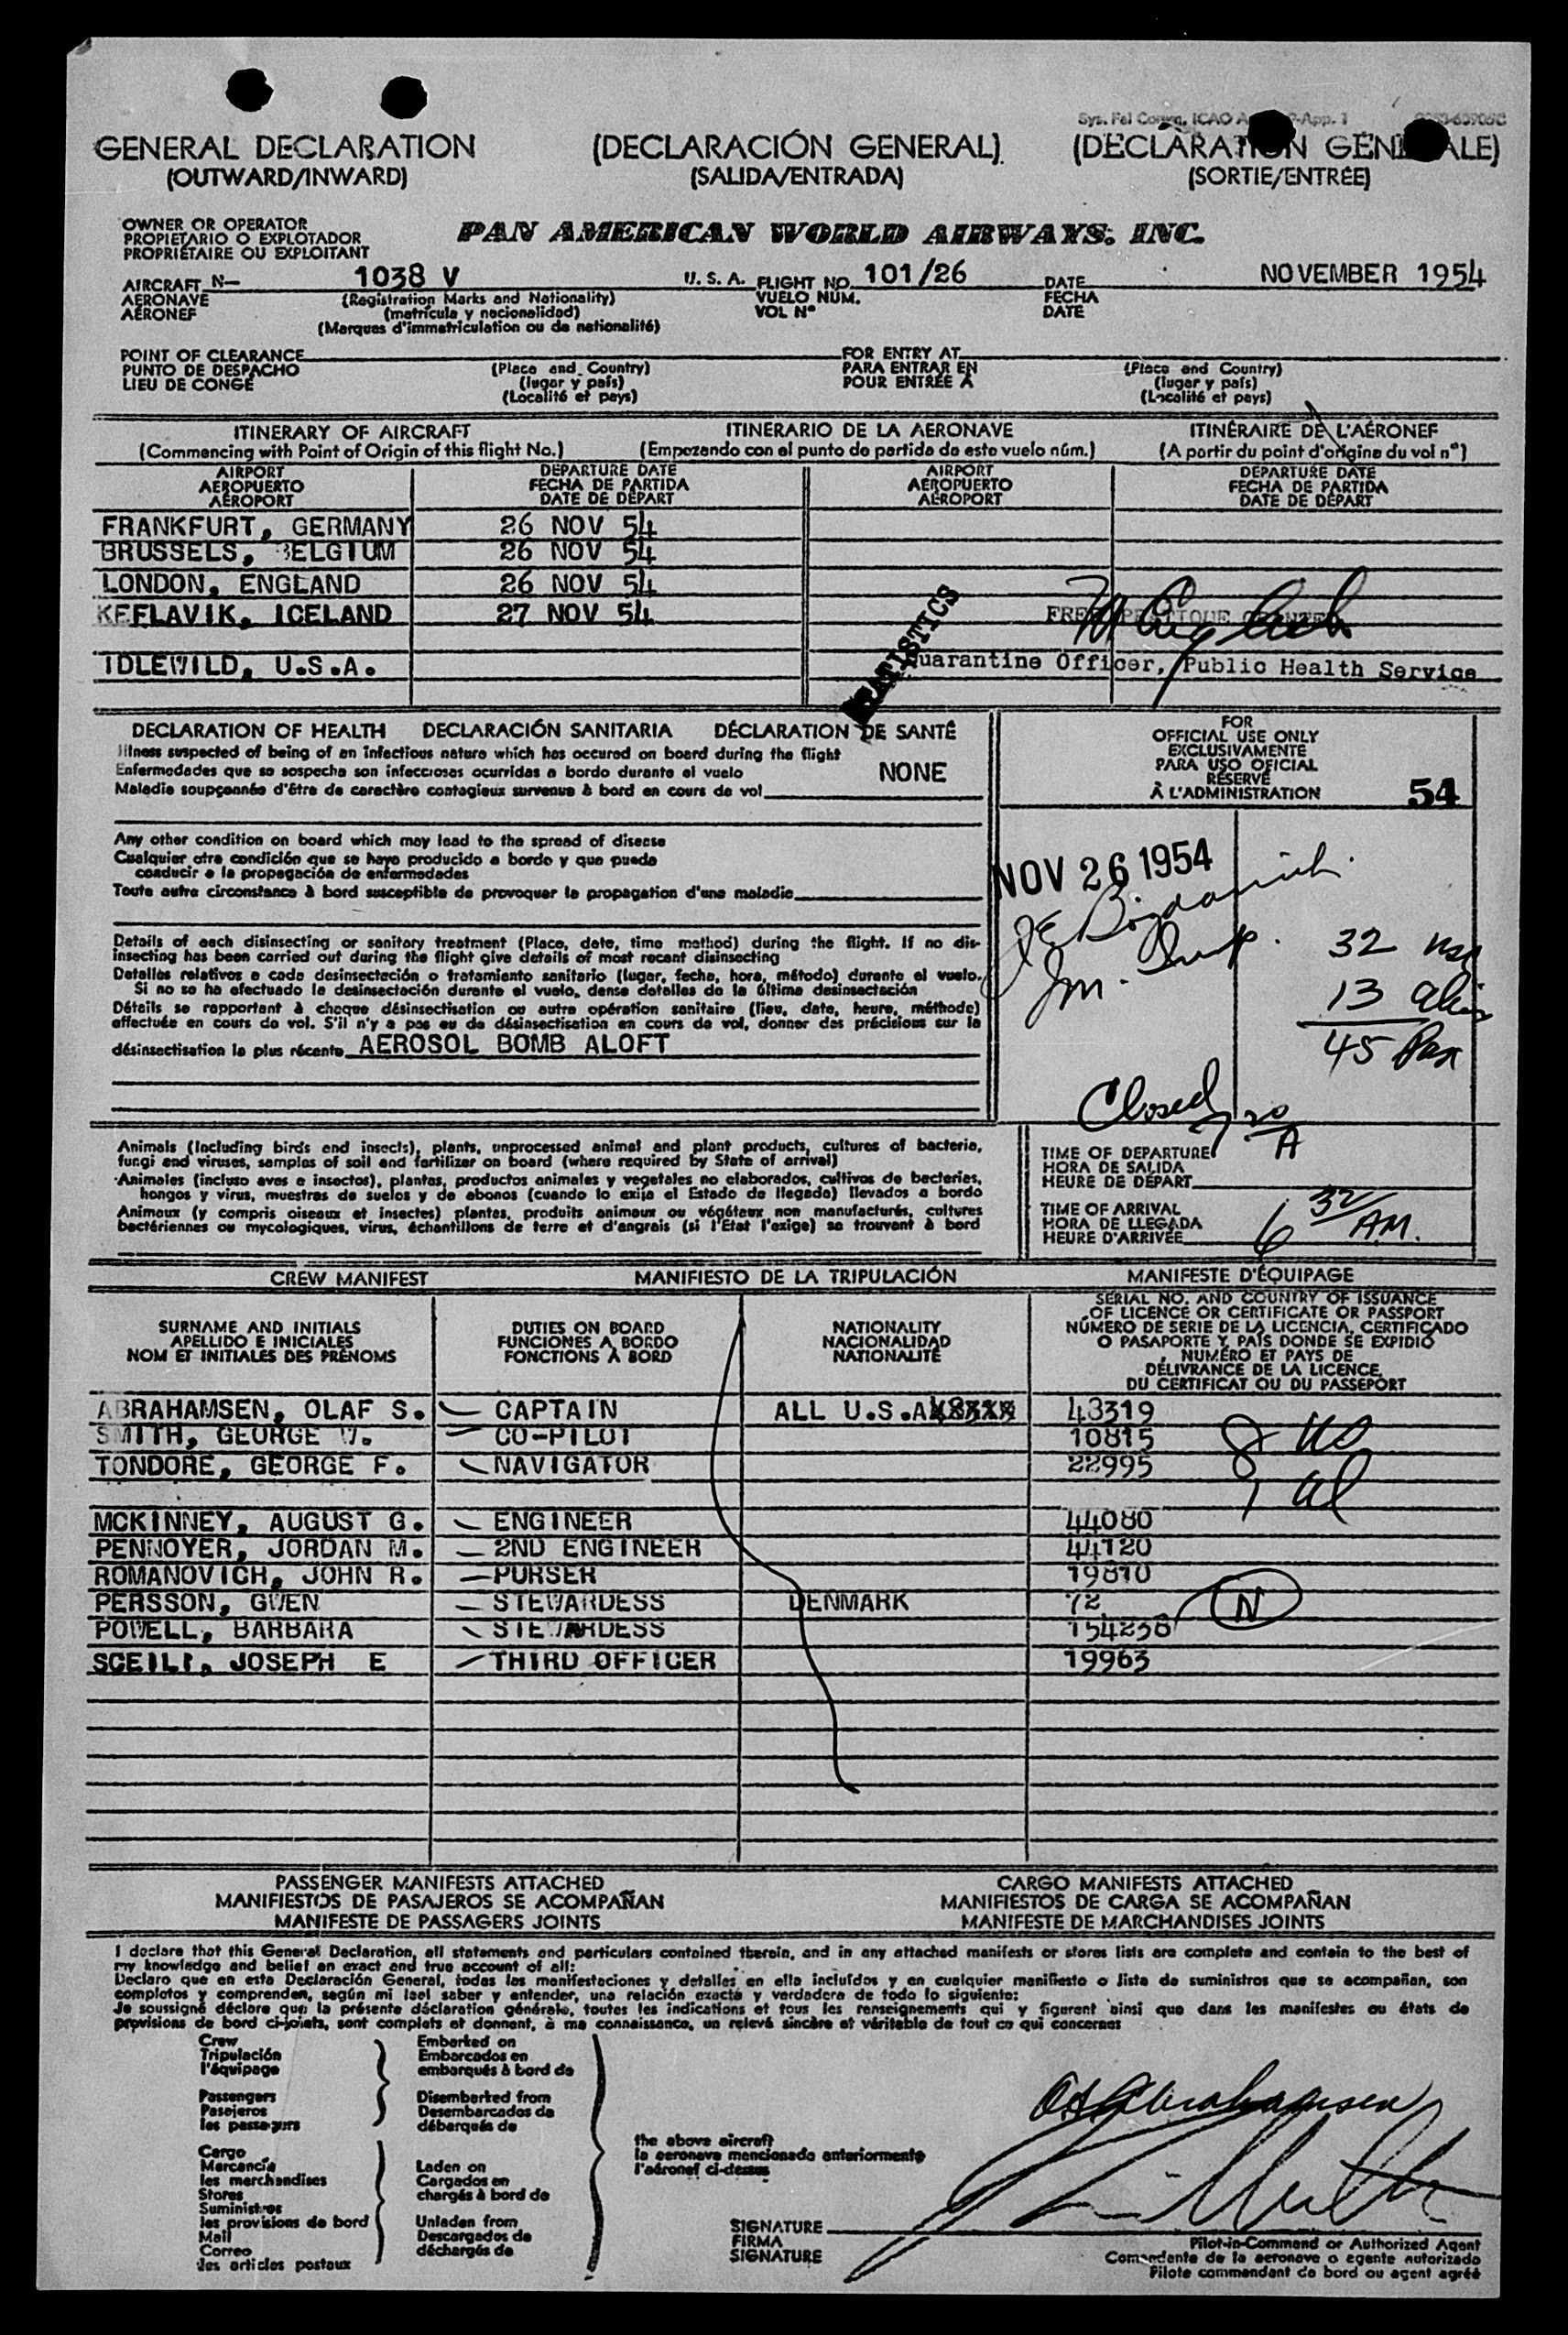 Sys. Fal Comm. ICAO A
GENERAL DECLARATION (DECLARACIÓN GENERAL) (DÉCLARATION GÉNÉRALE)
(OUTWARD/INWARD) (SALIDA/ENTRADA) (SORTIE/ENTRÉE)
OWNER OR OPERATOR
PROPIETARIO O EXPLOTADOR
PROPRIÉTAIRE OU EXPLOITANT
PAN AMERICAN WORLD AIRWAYS, INC.
AIRCRAFT N— 1038 V U. S. A. FLIGHT NO. 101/26 DATE NOVEMBER 1954
AERONAVE (Registration Marks and Nationality) VUELO NÚM. FECHA
AÉRONEF (matrícula y nacionalidad) VOL N° DATE
(Marques d'immatriculation ou de nationalité)
POINT OF CLEARANCE FOR ENTRY AT
PUNTO DE DESPACHO (Place and Country) PARA ENTRAR EN (Place and Country)
LIEU DE CONGÉ (lugar y país) POUR ENTRÉE À (lugar y país)
(Localité et pays) (Localité et pays)
ITINERARY OF AIRCRAFT ITINERARIO DE LA AERONAVE ITINÉRAIRE DE L'AÉRONEF
(Commencing with Point of Origin of this flight No.) (Empezando con el punto de partida de este vuelo núm.) (A partir du point d'origine du vol n°)
AIRPORT DEPARTURE DATE AIRPORT DEPARTURE DATE
AEROPUERTO FECHA DE PARTIDA AEROPUERTO FECHA DE PARTIDA
AÉROPORT DATE DE DÉPART AÉROPORT DATE DE DÉPART
FRANKFURT, GERMANY 26 NOV 54
BRUSSELS, BELGIUM 26 NOV 54
LONDON, ENGLAND 26 NOV 54
KEFLAVIK, ICELAND 27 NOV 54
FREE PRATIQUE GRANTED
STATISTICS
IDLEWILD, U.S.A.
Quarantine Officer, Public Health Service
DECLARATION OF HEALTH DECLARACIÓN SANITARIA DÉCLARATION DE SANTÉ
Illness suspected of being of an infectious nature which has occured on board during the flight
Enfermedades que se sospecha son infecciosas ocurridas a bordo durante el vuelo NONE
Maladie soupçonnée d'être de caractère contagieux survenue à bord en cours de vol
FOR
OFFICIAL USE ONLY
EXCLUSIVAMENTE
PARA USO OFICIAL
RÉSERVÉ
À L'ADMINISTRATION 54
Any other condition on board which may lead to the spread of disease
Cualquier otra condición que se haya producido a bordo y que pueda
conducir a la propagación de enfermedades
Toute autre circonstance à bord susceptible de provoquer la propagation d'une maladie
NOV 26 1954
Bogdanich
Im. Insp.
32 usa
13 alien
45 Pax
Closed 7 20 A
Details of each disinsecting or sanitary treatment (Place, date, time method) during the flight. If no dis-
insecting has been carried out during the flight give details of most recent disinsecting
Detalles relativos a cada desinsectación o tratamiento sanitario (lugar, fecha, hora, método) durante el vuelo.
Si no se ha efectuado la desinsectación durante el vuelo, dense detalles de la última desinsectación
Détails se rapportant à chaque désinsectisation ou autre opération sanitaire (lieu, date, heure, méthode)
effectuée en cours de vol. S'il n'y a pas eu de désinsectisation en cours de vol, donner des précisions sur la
désinsectisation la plus récente AEROSOL BOMB ALOFT
Animals (Including birds and insects), plants, unprocessed animal and plant products, cultures of bacteria,
fungi and viruses, samples of soil and fertilizer on board (where required by State of arrival)
Animales (incluso aves e insectos), plantas, productos animales y vegetales no elaborados, cultivos de bacterias,
hongos y virus, muestras de suelos y de abonos (cuando lo exija el Estado de llegada) llevados a bordo
Animaux (y compris oiseaux et insectes) plantes, produits animaux ou végétaux non manufacturés, cultures
bactériennes ou mycologiques, virus, échantillons de terre et d'engrais (si l'Etat l'exige) se trouvant à bord
TIME OF DEPARTURE
HORA DE SALIDA
HEURE DE DÉPART
TIME OF ARRIVAL
HORA DE LLEGADA
HEURE D'ARRIVÉE 6 32 AM.
CREW MANIFEST MANIFIESTO DE LA TRIPULACIÓN MANIFESTE D'ÉQUIPAGE
SURNAME AND INITIALS DUTIES ON BOARD NATIONALITY
APELLIDO E INICIALES FUNCIONES A BORDO NACIONALIDAD
NOM ET INITIALES DES PRÉNOMS FONCTIONS À BORD NATIONALITÉ
SERIAL NO. AND COUNTRY OF ISSUANCE
OF LICENCE OR CERTIFICATE OR PASSPORT
NÚMERO DE SERIE DE LA LICENCIA, CERTIFICADO
O PASAPORTE Y PAÍS DONDE SE EXPIDIÓ
NUMÉRO ET PAYS DE
DÉLIVRANCE DE LA LICENCE,
DU CERTIFICAT OU DU PASSEPORT
ABRAHAMSEN, OLAF S. CAPTAIN ALL U.S.A 43319
SMITH, GEORGE W. CO-PILOT 10815 8 US
TONDORE, GEORGE F. NAVIGATOR 22995
1 al
MCKINNEY, AUGUST G. ENGINEER 44080
PENNOYER, JORDAN M. 2ND ENGINEER 44120
ROMANOVICH, JOHN R. PURSER 19810
PERSSON, GWEN STEWARDESS DENMARK 72 N
POWELL, BARBARA STEWARDESS 154238
SCEILI, JOSEPH E THIRD OFFICER 19963
PASSENGER MANIFESTS ATTACHED CARGO MANIFESTS ATTACHED
MANIFIESTOS DE PASAJEROS SE ACOMPAÑAN MANIFIESTOS DE CARGA SE ACOMPAÑAN
MANIFESTE DE PASSAGERS JOINTS MANIFESTE DE MARCHANDISES JOINTS
I declare that this General Declaration, all statements and particulars contained therein, and in any attached manifests or stores lists are complete and contain to the best of
my knowledge and belief an exact and true account of all:
Declaro que en esta Declaración General, todas las manifestaciones y detalles en ella incluídos y en cualquier manifiesto o lista de suministros que se acompañan, son
completos y comprenden, según mi leal saber y entender, una relación exacta y verdadera de todo lo siguiente:
Je soussigné déclare que la présente déclaration générale, toutes les indications et tous les renseignements qui y figurent ainsi que dans les manifestes ou états de
provisions de bord ci-joints, sont complets et donnent, à ma connaissance, un relevé sincère et véritable de tout ce qui concerne:
Crew Embarked on
Tripulación Embarcados en
l'équipage embarqués à bord de
Passengers Disembarked from
Pasajeros Desembarcados de
les passagers débarqués de
the above aircraft
la aeronave mencionada anteriormente
l'aéronef ci-dessus
Cargo
Mercancía Laden on
les marchandises Cargados en
Stores chargés à bord de
Suministros
les provisions de bord Unladen from
Mail Descargados de
Correo déchargés de
les articles postaux
OS Abrahamsen
SIGNATURE
FIRMA
SIGNATURE
Pilot-in-Command or Authorized Agent
Comandante de la aeronave o agente autorizado
Pilote commandant de bord ou agent agréé